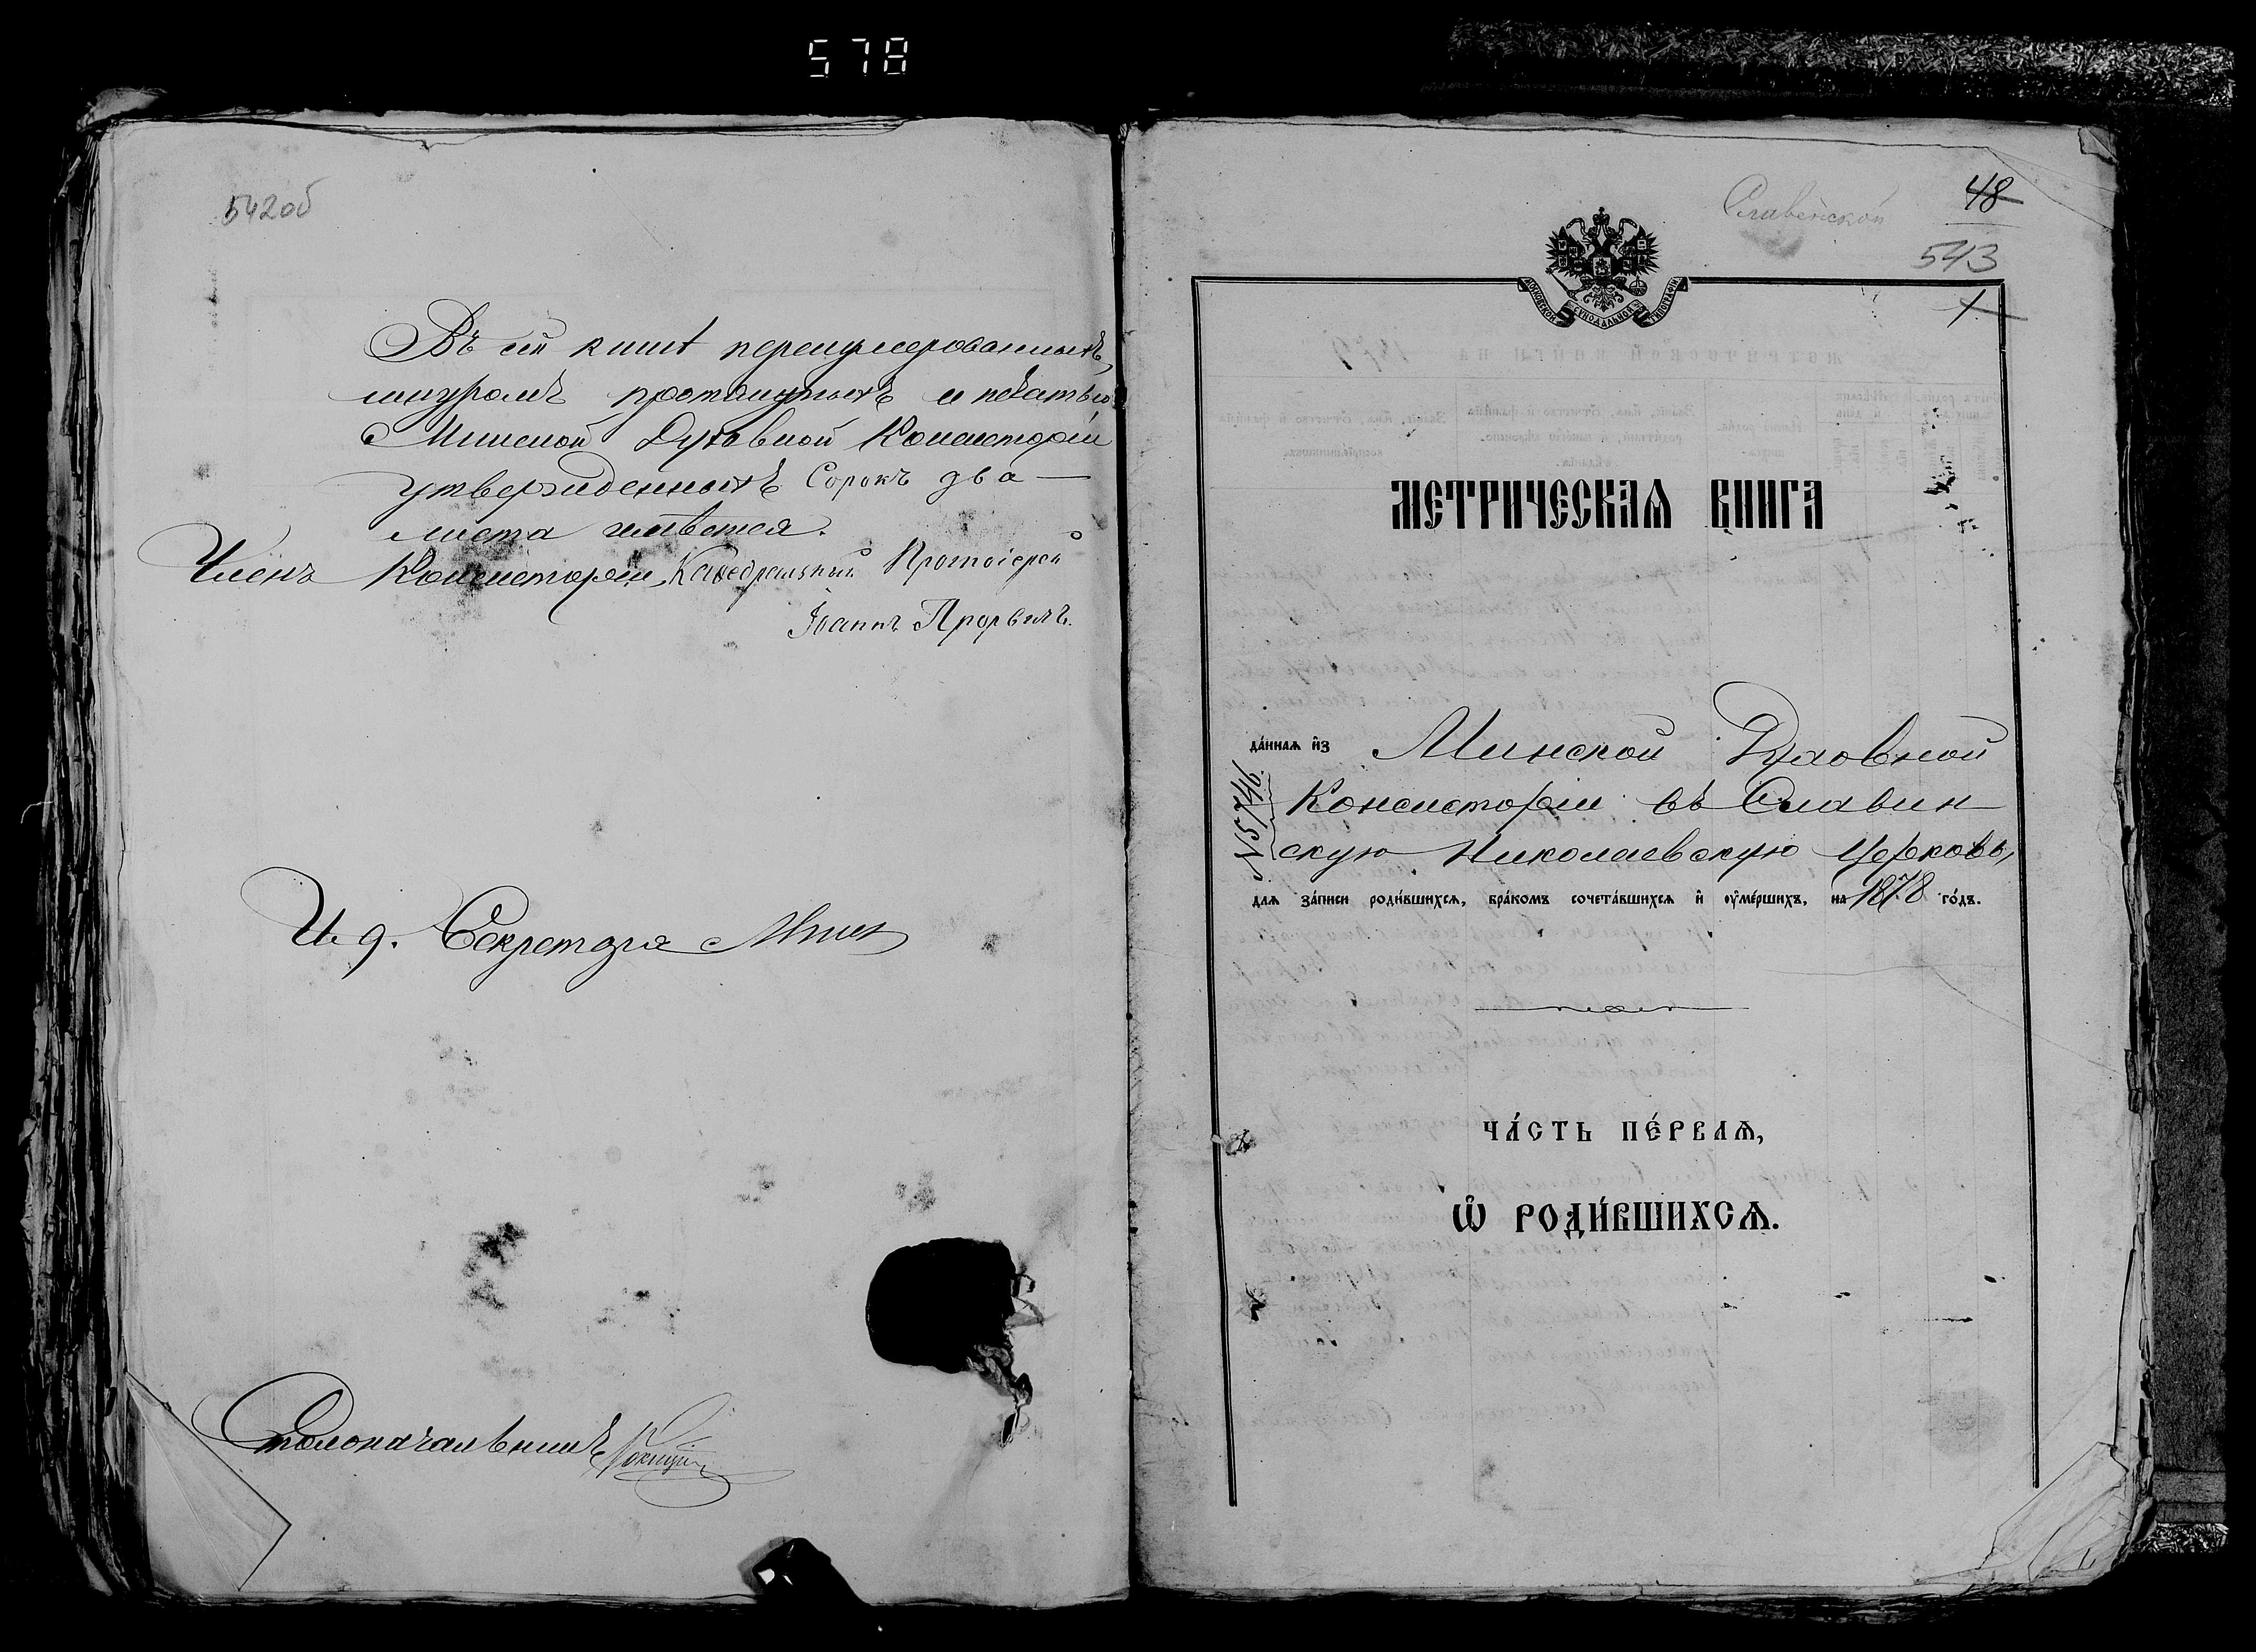 578
542об
Въ сей книгѣ перенумерованныхъ,
шнуромъ протянутыхъ и печатью
Минской Духовной Консисторіи
утвержденныхъ Сорокъ два —
листа имѣется.
Членъ Консисторіи, Каѳедральный Протоіерей
Іоаннъ
И. д. Секретаря
Столоначальникъ
Славенской
48
543
1
МОСКОВСКОЙ СѴНОДАЛЬНОЙ ТИПОГРАФІИ
МЕТРИЧЕСКАѦ КНИГА
да́ннаѧ и҆з Минской Духовной
Консисторіи въ Славин
скую Николаевскую Церковь,
№ 5746
длѧ за́писи роди́вшихсѧ, бра́комъ сочета́вшихсѧ и҆ ѹ҆ме́ршихъ, на 1878 го́дъ.
ЧА́СТЬ ПЕ́РВАѦ,
Ѡ҆ РОДИ́ВШИХСѦ.